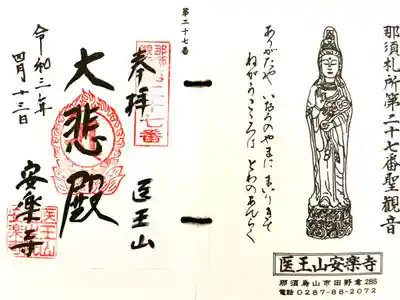 那須札所第二十七番聖観音
ありがたや いおうのやまに まいりきて
ねがうこころは とわのあんらく
医王山安楽寺
那須烏山市田野倉286
電話0287-88-2072
第二十七番
奉拝
医王山
大悲殿
安楽寺
令和三年
四月十三日
医王山
安楽寺